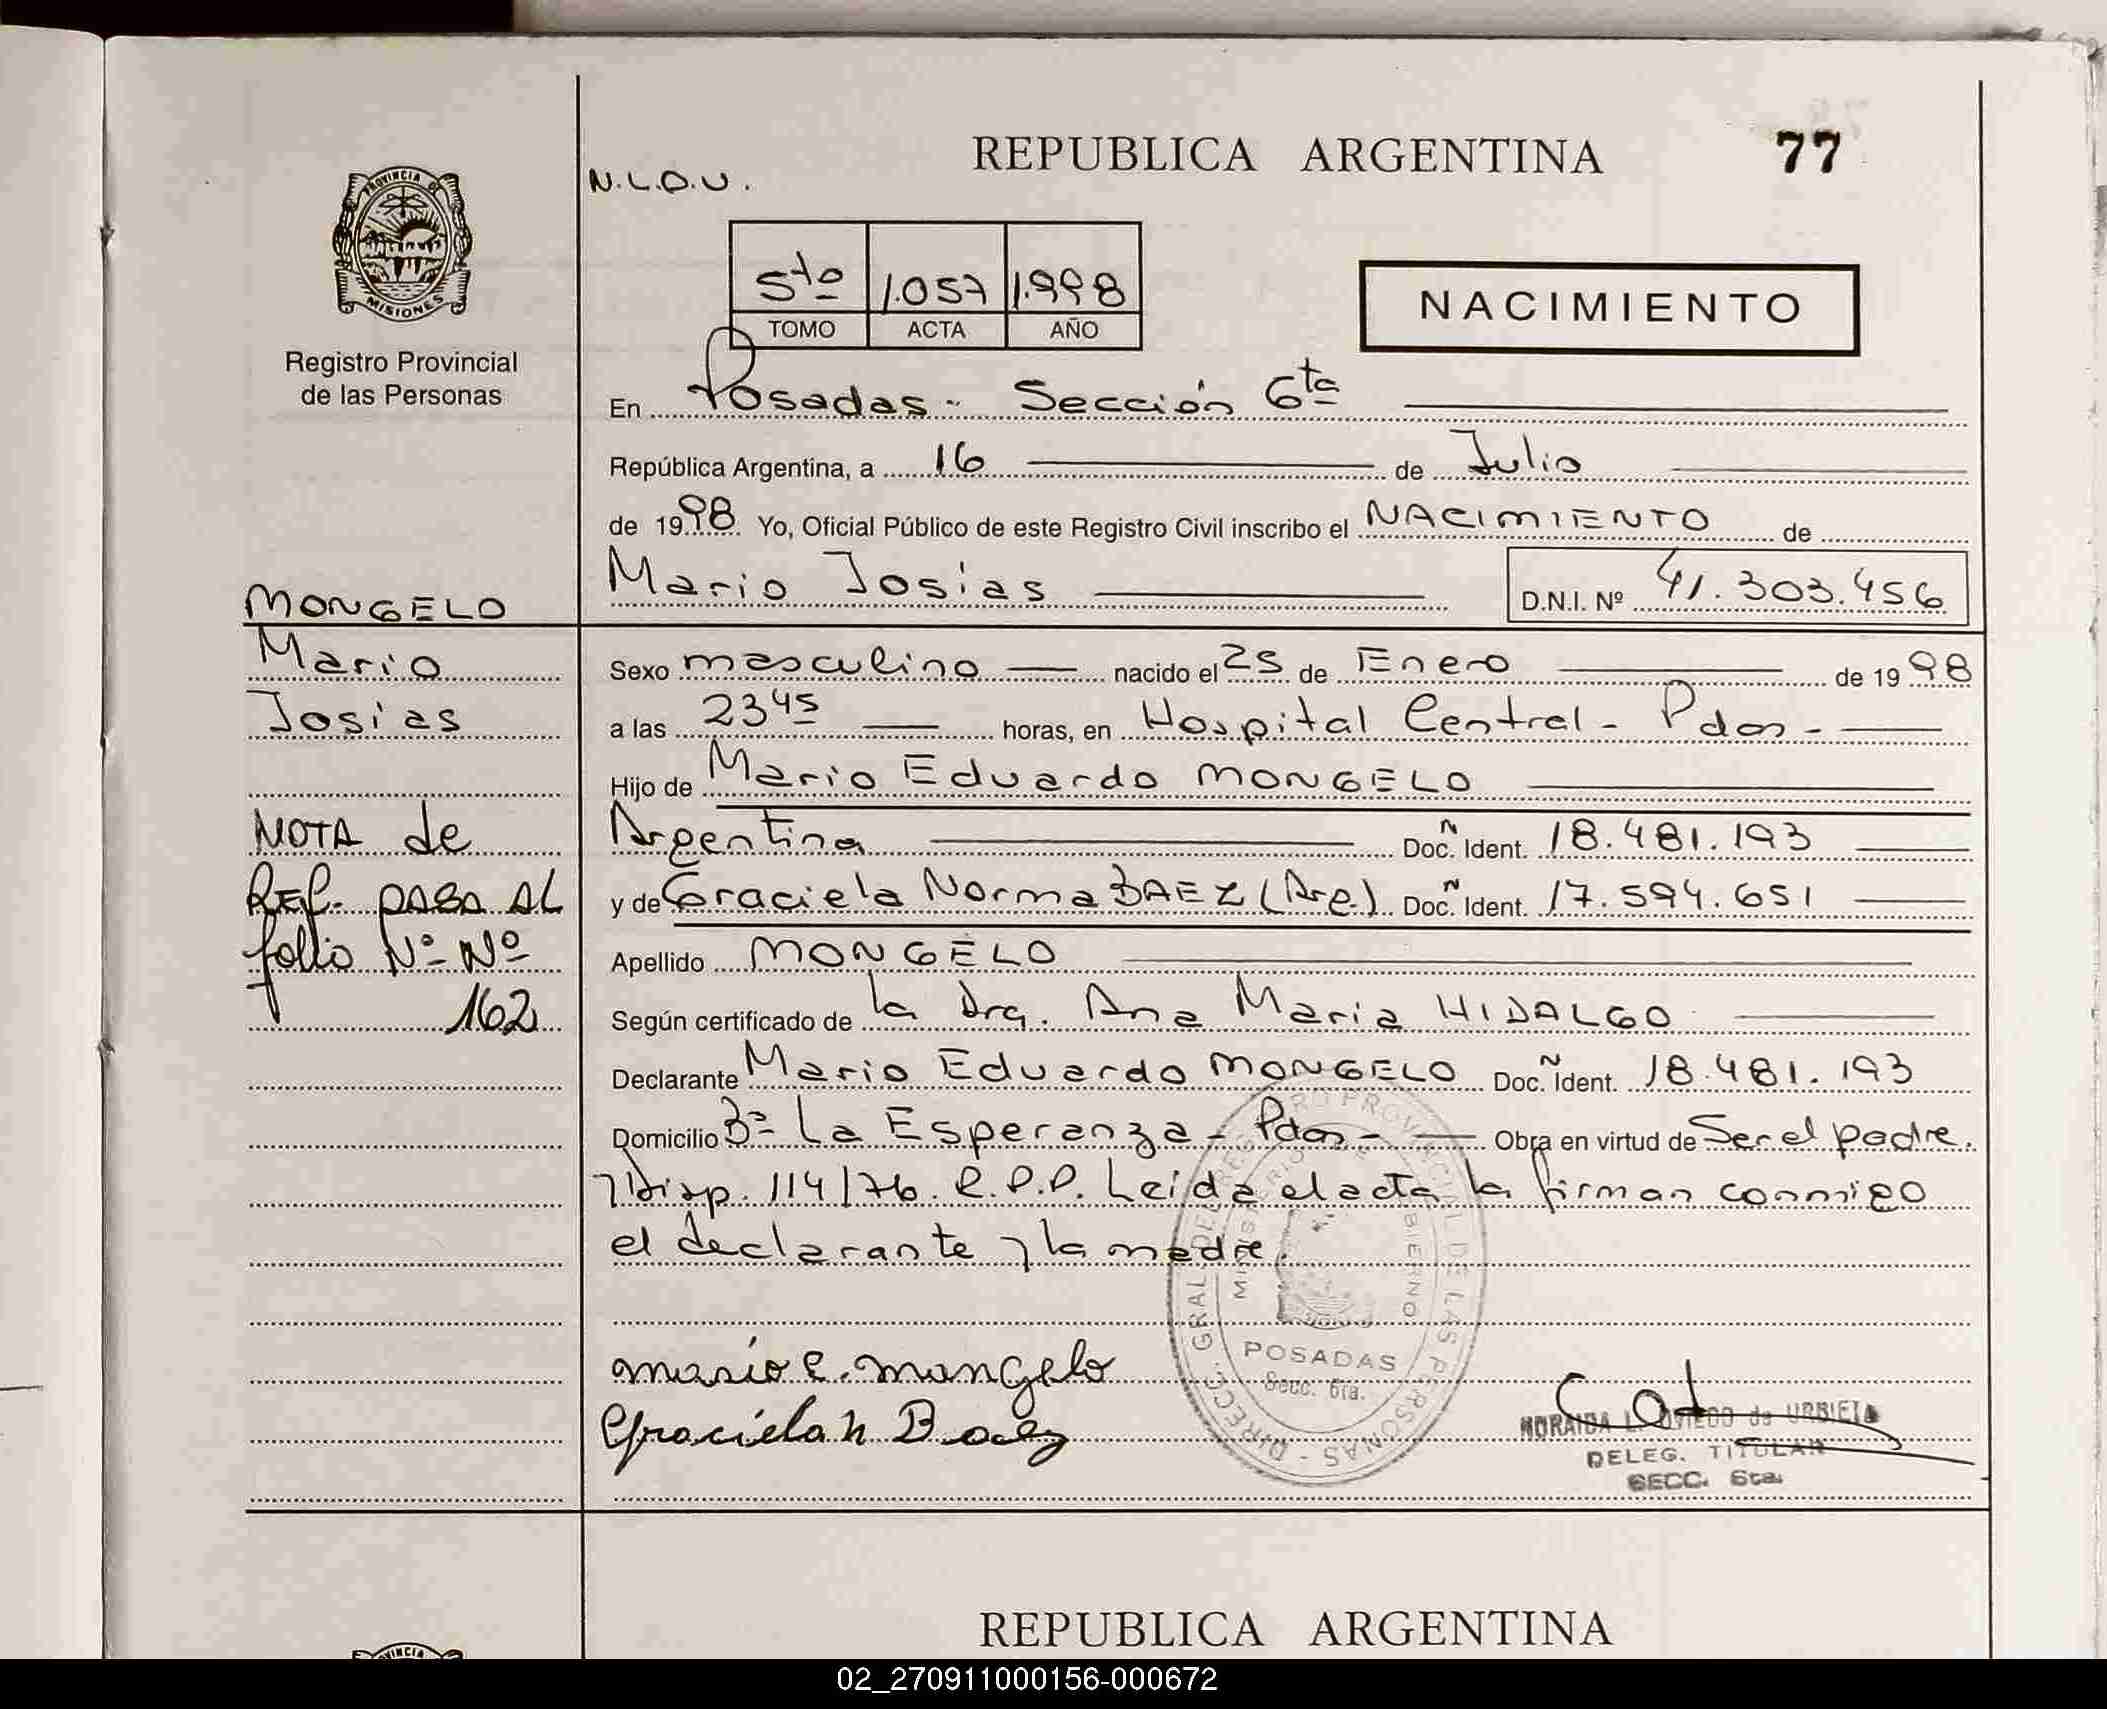 REPUBLICA ARGENTINA 77
PROVINCIA DE
MISIONES
N.L.D.U.
5to 1.057 1.998
TOMO ACTA AÑO
NACIMIENTO
Registro Provincial
de las Personas
En Posadas - Sección 6ta
República Argentina, a 16 de Julio
de 1998 Yo, Oficial Público de este Registro Civil inscribo el NACIMIENTO de
Mario Josías D.N.I. Nº 41.303.456
MONGELO
Mario
Josías
NOTA de
REF. PASA AL
folio Nº Nº
162
Sexo masculino nacido el 25 de Enero de 1998
a las 23 45 horas, en Hospital Central - Pdas -
Hijo de Mario Eduardo MONGELO
Argentina Doc. Ñ Ident. 18.481.193
y de Graciela Norma BAEZ (Arg.) Doc. Ñ Ident. 17.594.651
Apellido MONGELO
Según certificado de la Dra. Ana Maria HIDALGO
Declarante Mario Eduardo MONGELO Doc. Ñ Ident. 18.481.193
Domicilio Bº La Esperanza - Pdas - Obra en virtud de Ser el padre.
y Disp. 114/76. R.P.P. Leída el acta la firman conmigo
el declarante y la madre.
DIRECC. GRAL. DEL REGISTRO PROVINCIAL DE LAS PERSONAS -
MINISTERIO DE GOBIERNO
POSADAS
Secc. 6ta.
Mario E. Mongelo
Graciela N Baez
NORAIDA L. OVIEDO de URBIETA
DELEG. TITULAR
SECC. 6ta.
REPUBLICA ARGENTINA
02_270911000156-000672